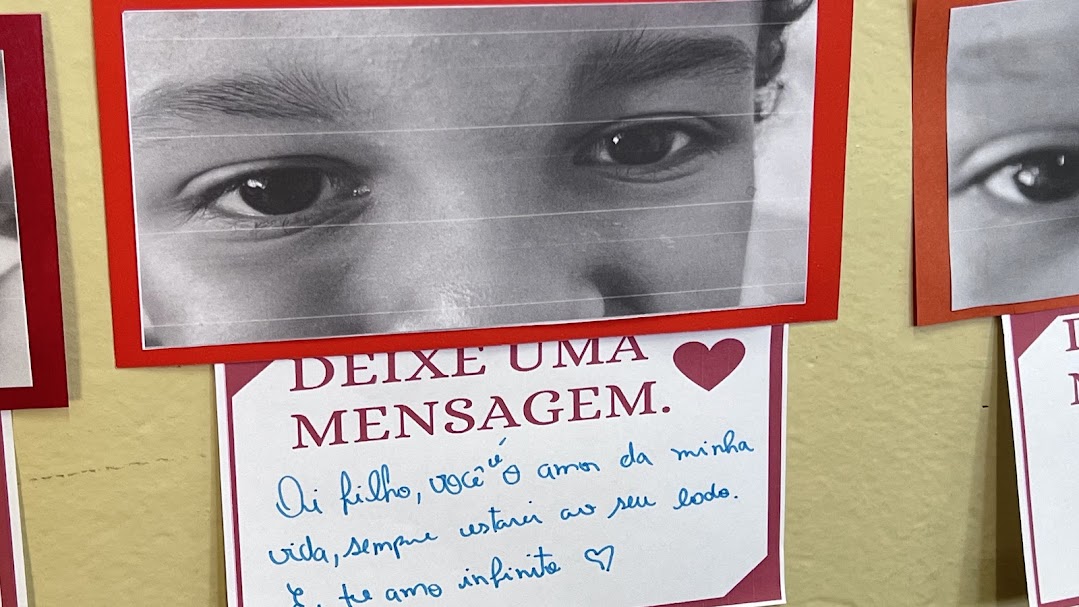 DEIXE UMA
MENSAGEM.
Oi filho, você é o amor da minha
vida, sempre estarei ao seu lado.
E, te amo infinito ♡